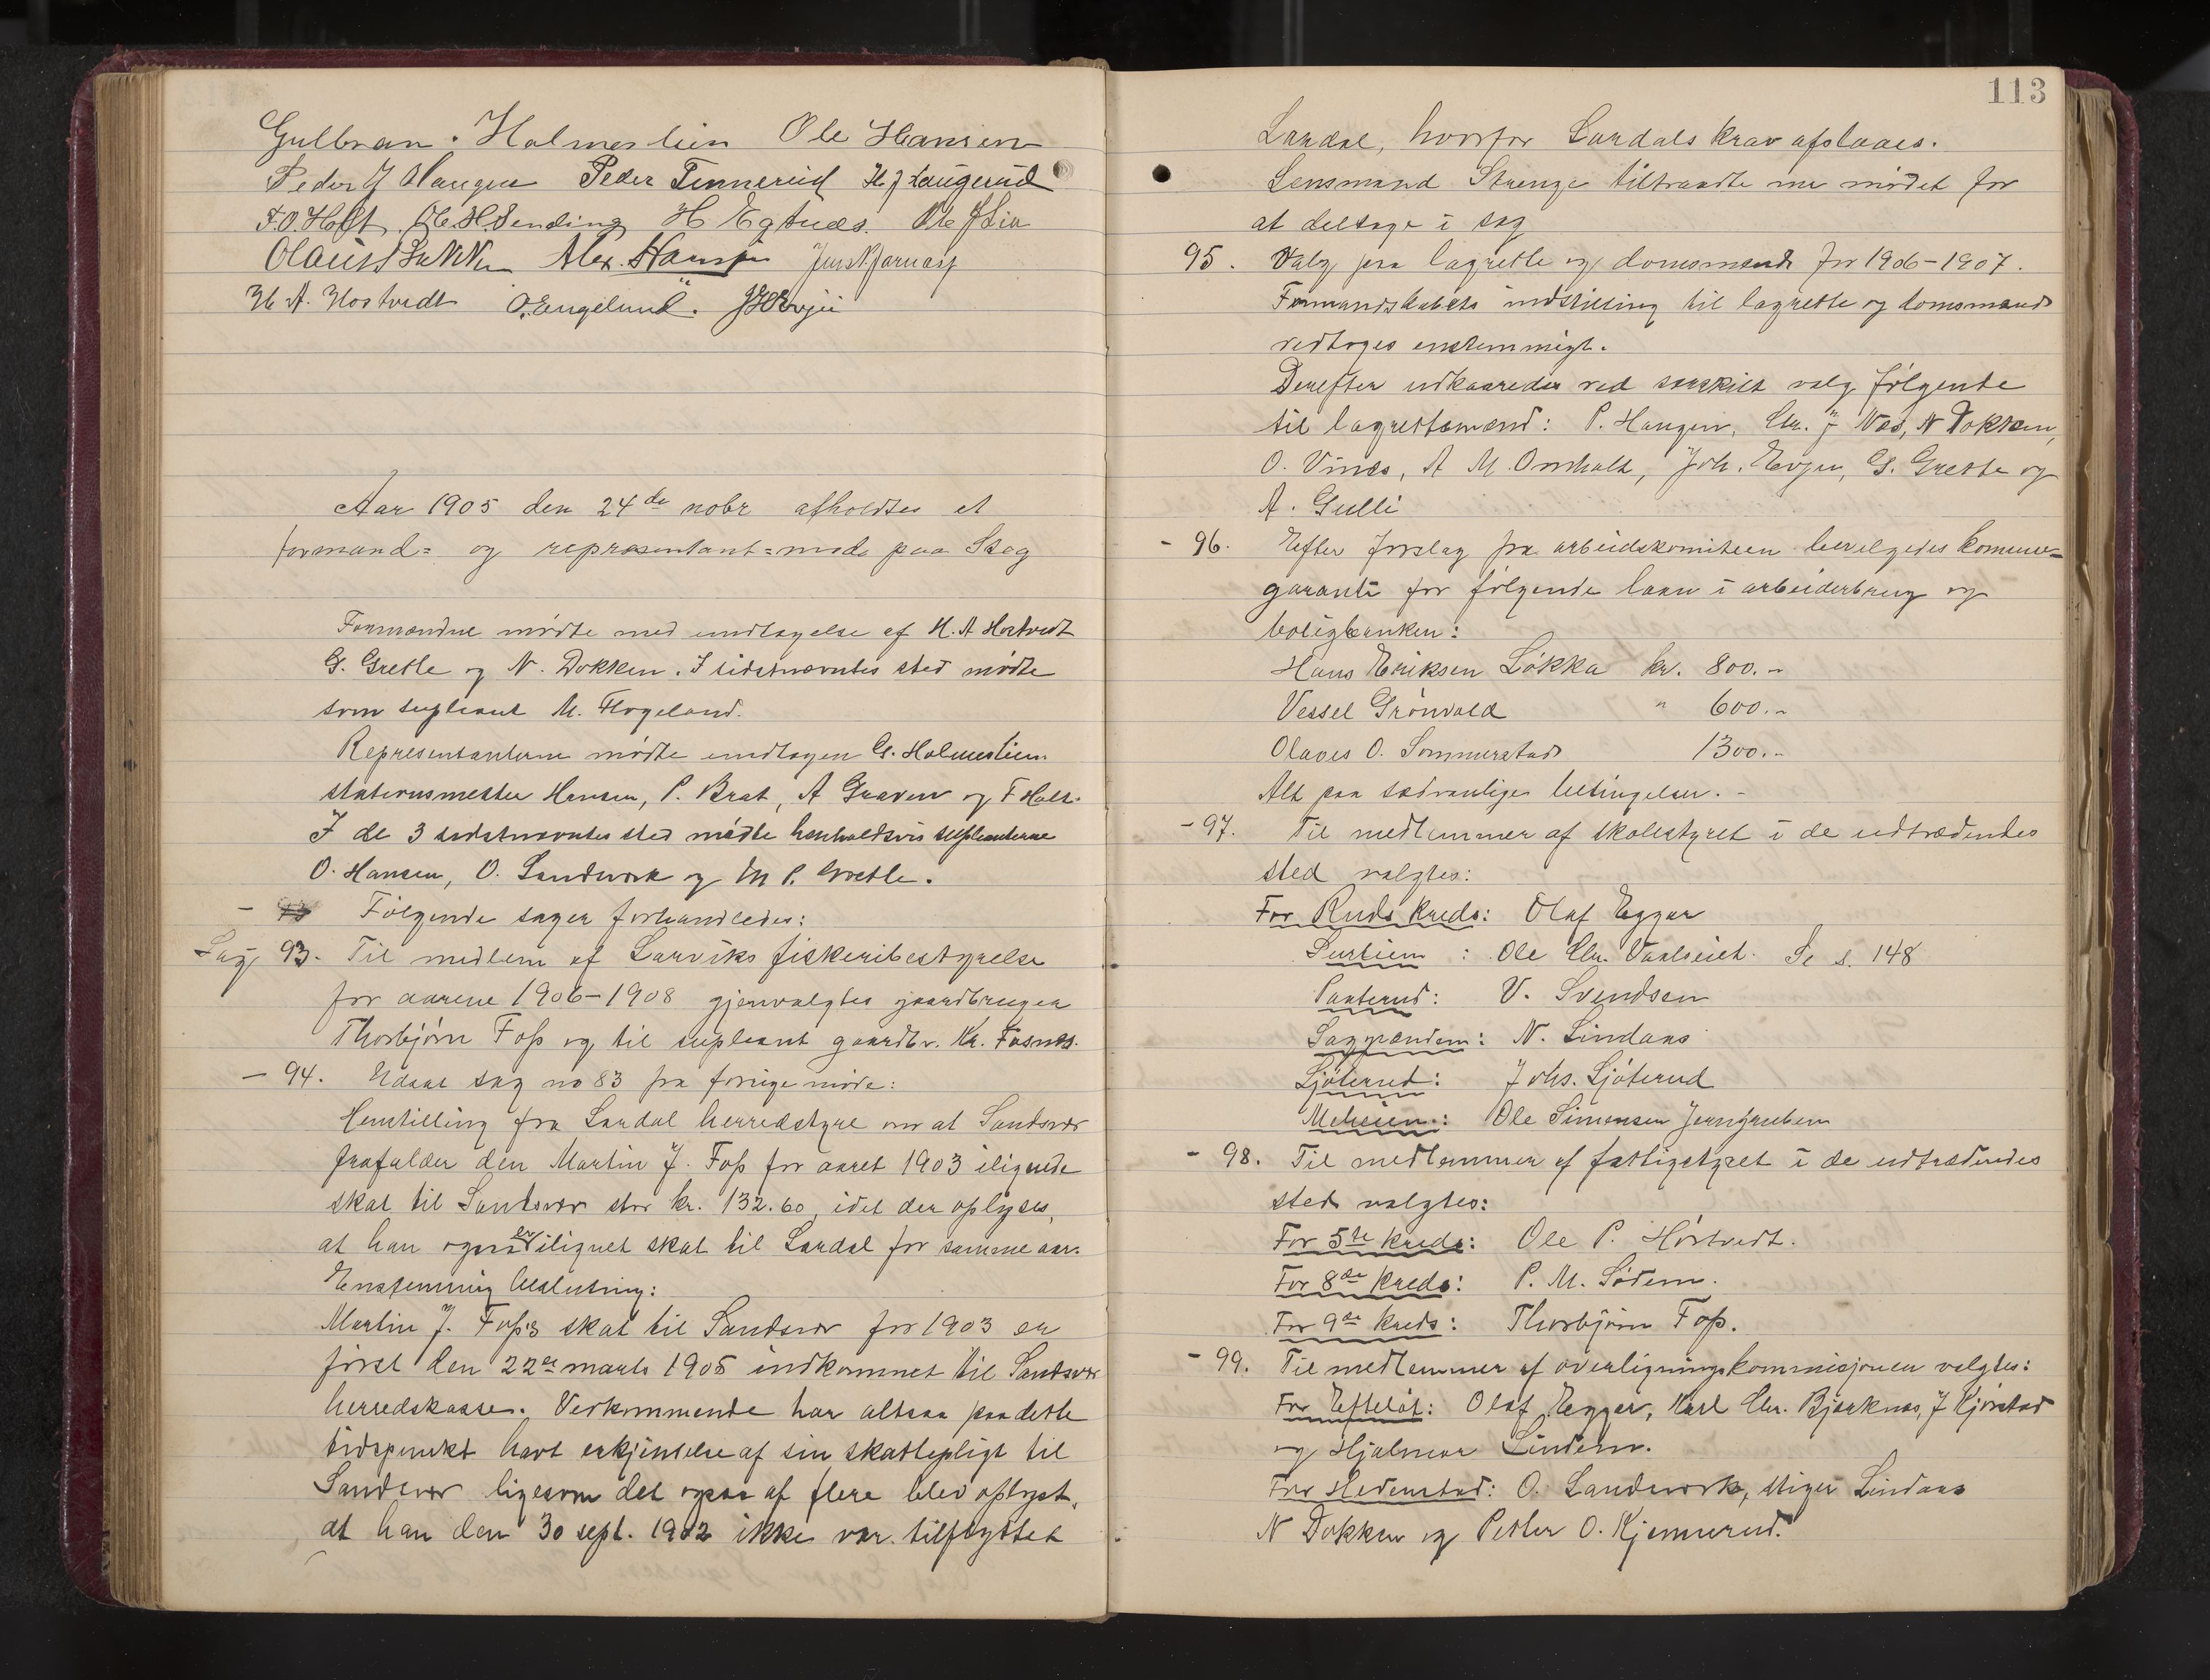 Gulbran Holmeslien Ole Hansen
Peder J Haugen Peder Tinnerud H J Laugerud
F. O. Holt. Ole H Sending H Egtnæs. Ole J Lia
Olaus Alex. Hansen
H A. Hostvedt O. Engelund. J H Evju
Aar 1905 den 24de nobr afholdtes et
formand= og representant=møde paa Skog
Formændne mødte med undtagelse af H. A Hostvedt
G. Gretle og N. Dokken. I sidstnævntes sted mødte
som supleant M. Flogeland.
Representanterne mødte undtagen G. Holmeslien
stationsmester Hansen, P. Brat, A Graven og F Holt.
I de 3 sidstnævntes sted mødte henholdsvis suppleanterne
O. Hansen, O. Landverk og M P. Gretle.
– Følgende sager forhandledes:
Sag 93. Til medlem af Larviks fiskeribestyrelse
for aarene 1906–1908 gjenvalgtes gaardbruger
Thorbjørn Foss og til supleant gaardbr. Kr. Fosnæs.
– 94. Udsat sag no 83 fra forrige møde:
Henstilling fra Lardal herredstyre om at Sandsvær
frafalder den Martin J. Foss for aaret 1903 ilignede
skat til Sandsvær stor kr. 132.60, idet der oplyses,
at han ogsaa er ilignet skat til Lardal for samme aar.
Enstemmig beslutning:
Martin J. Foss's skat til Sandsvær for 1903 er
først den 22de marts 1905 indkommet til Sandsvær
herredskasse. Vedkommende har altsaa paa dette
tidspunkt havt erkjendelse af sin skattepligt til
Sandsvær ligesom det ogsaa af flere blev oplyst,
at han den 30 sept. 1902 ikke var tilflyttet
113
Lardal, hvorfor Lardals krav afslaaes.
Lensmand Strenge tiltraadte nu mødet for
at deltage i sag
95. Valg paa lagrette og domsmænd for 1906–1907.
Formandskabets indstilling til lagrette og domsmænd
vedtoges enstemmigt.
Derefter udkaaredes ved særskilt valg følgende
til lagrettsmænd: P. Haugen, Chr. J Næs, N Dokken,
O. Vinæs, A M. Omholt, Joh. Evju, G. Gretle og
A. Gulli
- 96. Efter forslag fra arbeidskomiteen bevilgedes kommune-
garanti for følgende laan i arbeiderbrug og
boligbanken:
Hans Eriksen Løkka kr. 800.-
Vessel Grønvold " 600.-
Olaves O. Sommerstad 1300.-
Alt paa sædvanlige betingelser. -
- 97. Til medlemmer af skolestyret i de udtrædendes
sted valgtes:
For Ruds kreds: Olaf Eggar
Surtiem : Ole Chr. Vaalseiet. Se s. 148
Paaterud: V. Svendsen
Saggrænden: N. Lindaas
Ljøterud: Johs. Ljøterud
Meheien: Ole Simensen Jerngruben
- 98. Til medlemmer af fattigstyret i de udtrædendes
sted valgtes:
For 5te kreds: Ole P. Hostvedt.
For 8de kreds: P. M. Sødem.
For 9de kreds: Thorbjørn Foss.
- 99. Til medlemmer af overligningskommisjonen valgtes:
For Efteløt: Olaf Eggar, Karl Chr. Bjerknæs, J Kjørstad
og Hjalmar Lindem.
For Hedenstad: O. Landverk, stiger Lindaas
N Dokken og Petter O. Kjennerud.